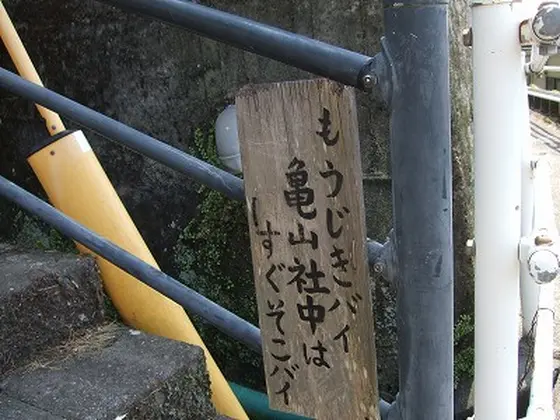 もうじきバイ
亀山社中は
すぐそこバイ